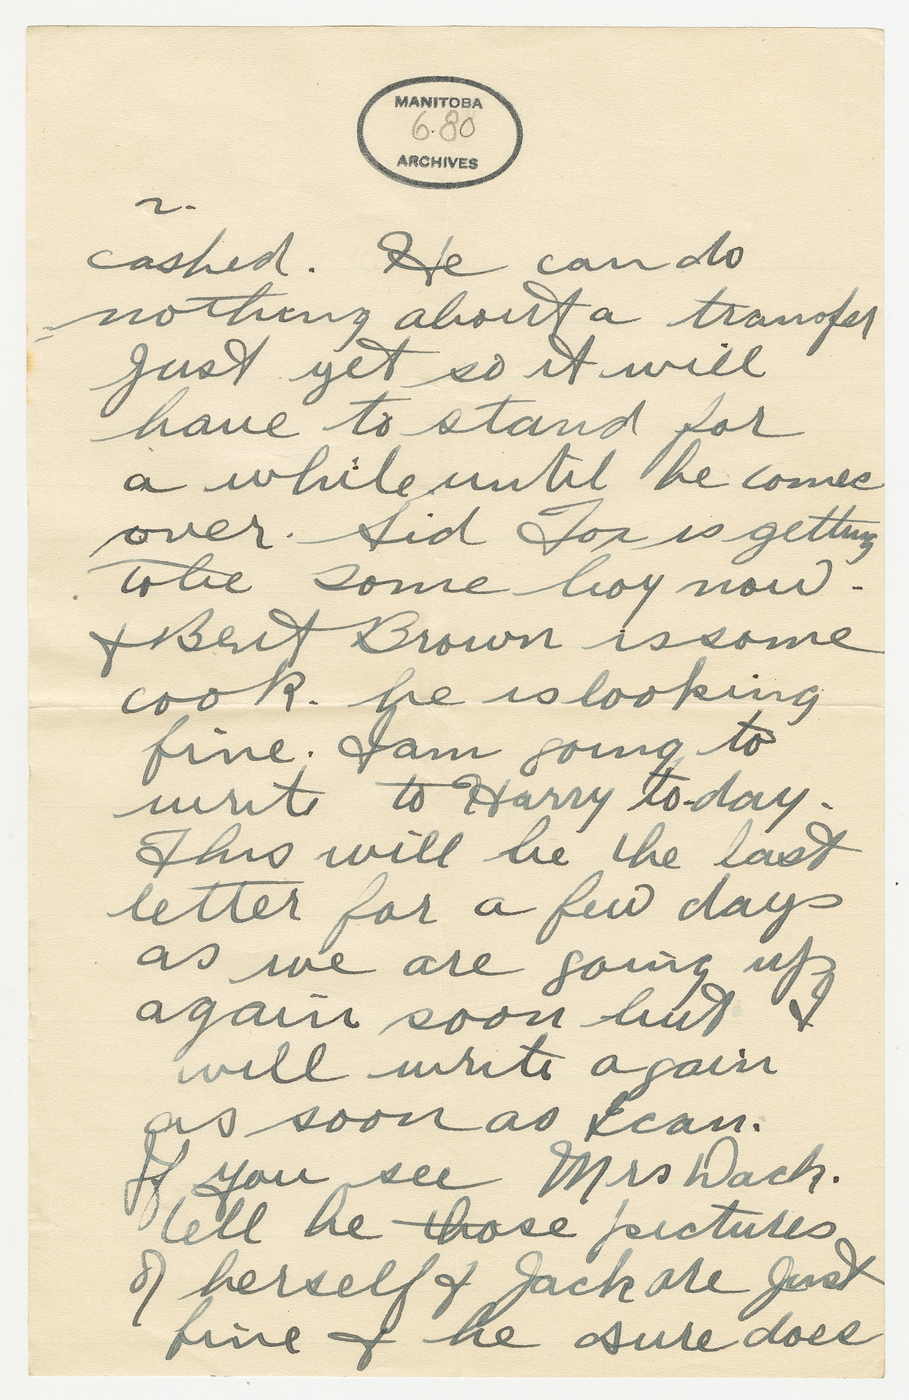 MANITOBA
6.80
ARCHIVES
2.
cashed. He can do
nothing about a transfer
just yet so it will
have to stand for
a while until he comes
over. Sid Fox is getting
to be some boy now.
& Bert Brown is some
cook. he is looking
fine. I am going to
write to Harry to-day.
This will be the last
letter for a few days
as we are going up
again soon but I
will write again
as soon as I can.
If you see Mrs Dack.
tell he those pictures
of herself & Jack are just
fine & he sure does